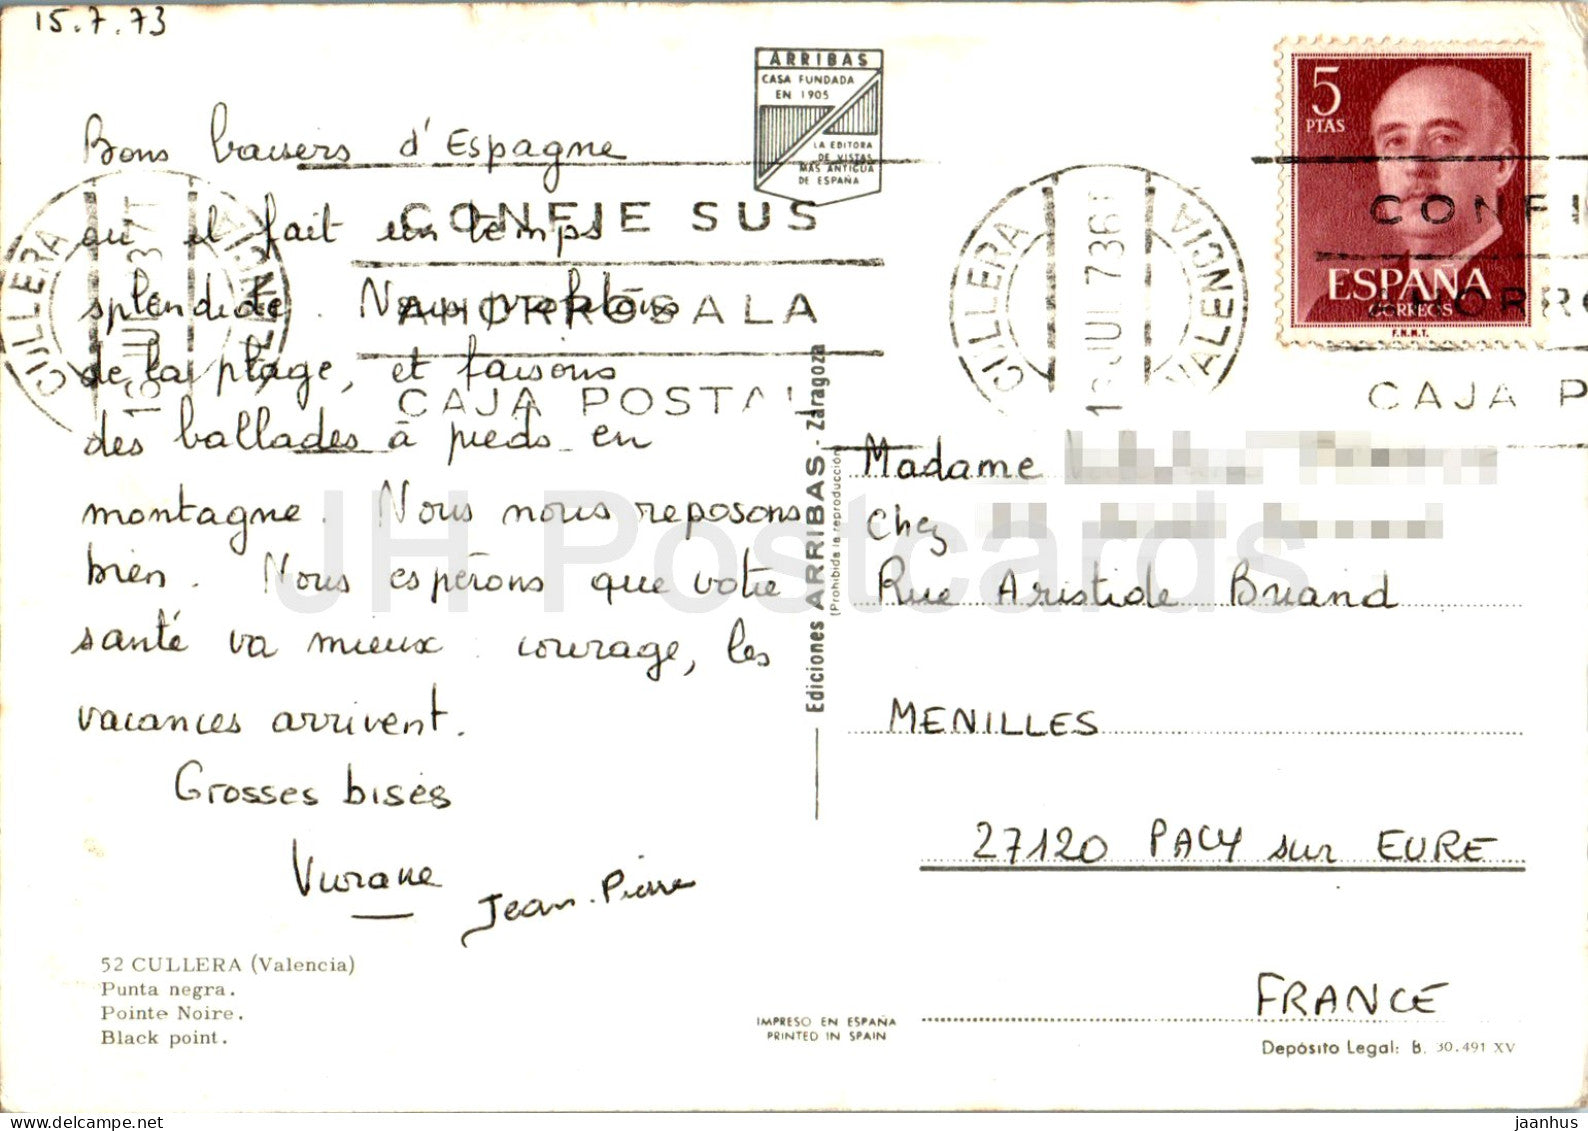 15.7.73
Bons baisers d'Espagne
où il fait un temps
splendide. Nous profitons
de la plage, et faisons
des ballades à pieds en
montagne. Nous nous reposons
bien. Nous espérons que votre
santé va mieux. courage, les
vacances arrivent.
Grosses bises
Jean-Pierre
52 CULLERA (Valencia)
Punta negra.
Pointe Noire.
Black point.
ARRIBAS
CASA FUNDADA
EN 1905
LA EDITORA
DE VISTAS
MAS ANTIGUA
DE ESPAÑA
CULLERA
VALENCIA
CONFIE SUS
AHORROS A LA
CAJA POSTAL
Ediciones ARRIBAS - Zaragoza
(Prohibida la reproducción)
CULLERA
JUL 73
VALENCIA
5
PTAS
ESPAÑA
CORREOS
F.N.M.T.
CONFI
AHORRO
CAJA P
Madame
chez
Rue Aristide Briand
MENILLES
27120 PACY sur EURE
FRANCE
IMPRESO EN ESPAÑA
PRINTED IN SPAIN
Depósito Legal: B. 30.491 XV
JH Postcards
HipPostcard.com
jaanhus